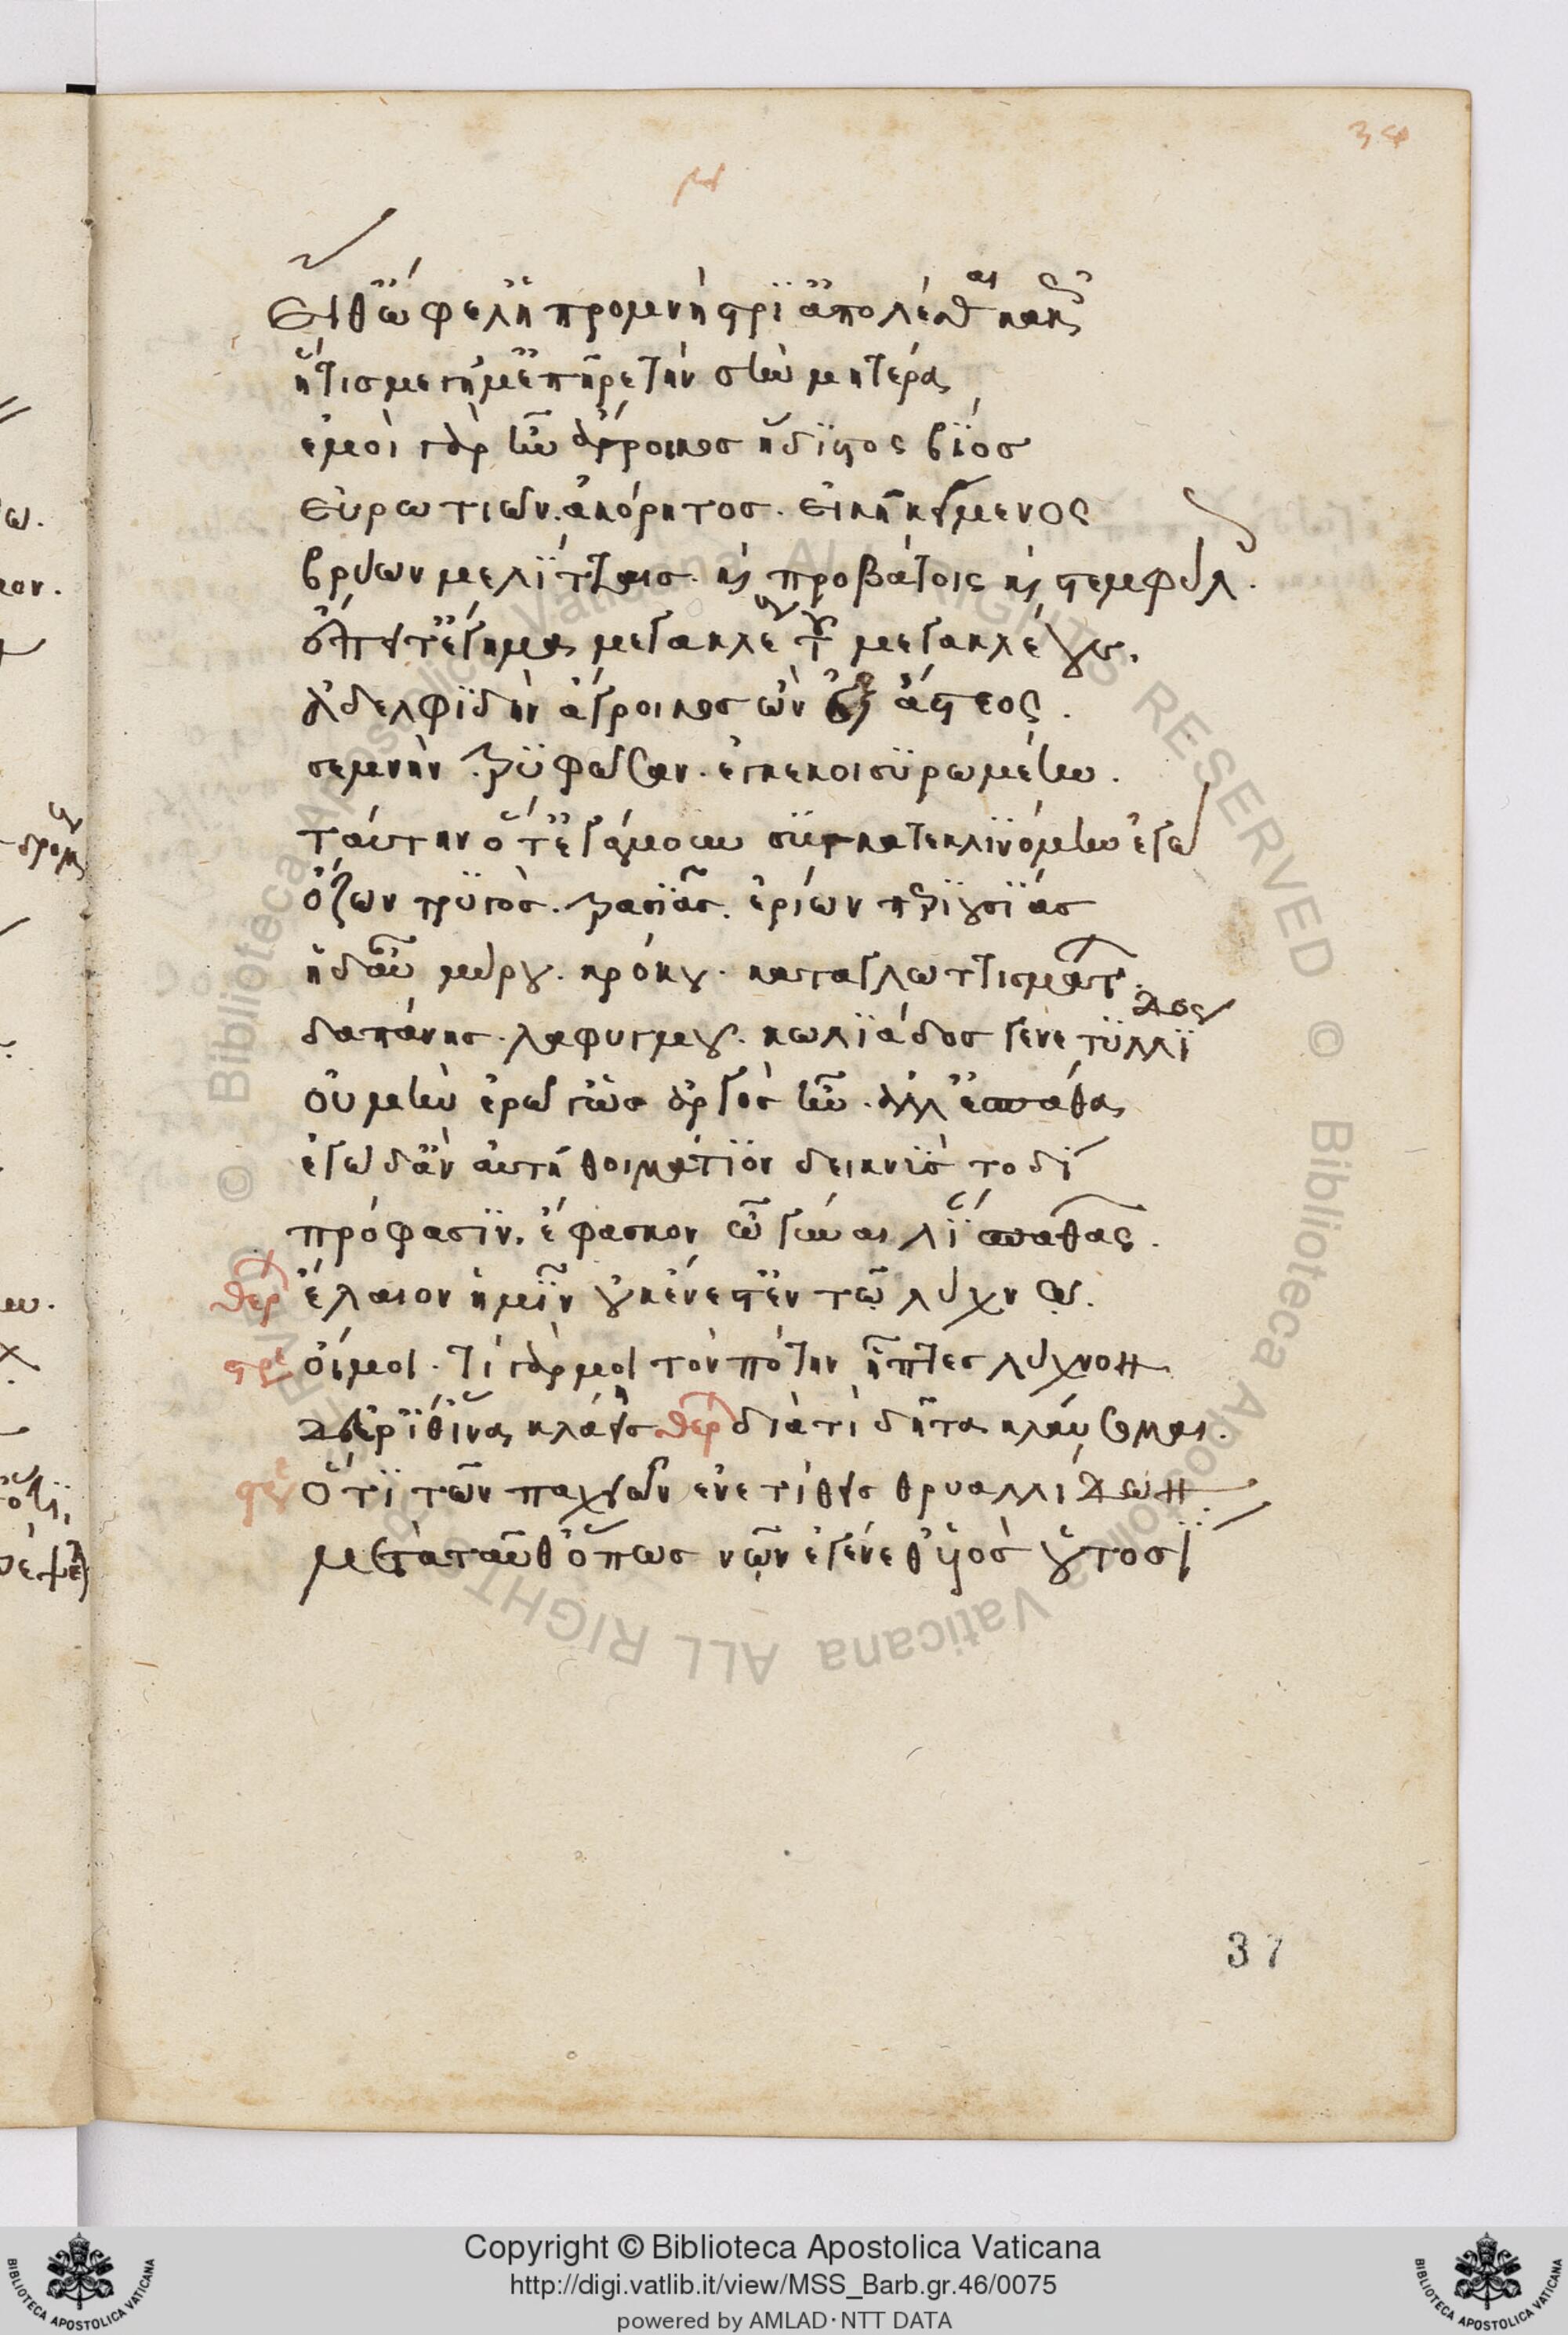 34
εἴθ' ὤφελ' ἡ προμνήστρι' ἀπολέσθαι κακῶς
ἥτις με γῆμ' ἐπῆρε τὴν σὴν μητέρα
ἐμοὶ γὰρ ἦν ἄγροικος ἥδιστος βίος
εὐρωτιῶν. ἀκόρητος. εἰκῆ κείμενος
βρύων μελίτταις. καὶ προβάτοις καὶ στεμφύλ.
ἔπειτ' ἔγημα μεγακλέους τοῦ μεγακλέους.
ἀδελφιδὴν ἄγροικος ὢν ἐξ ἄστεος.
σεμνὴν τρυφῶσαν. ἐγκεκοισυρωμένην.
ταύτην ὅτ' ἐγάμουν συγκατεκλινόμην ἐγὼ
ὄζων τρυγὸς. τρασιᾶς. ἐρίων περιουσίας
ἡ δ' αὖ μύρου. κρόκου. καταγλωττισμάτ.
δαπάνης. λαφυγμοῦ. κωλιάδος γενετυλλίδος
οὐ μὴν ἐρῶ γ' ὡς ἀργὸς ἦν. ἀλλ' ἐσπάθα
ἐγὼ δ' ἂν αὐτῇ θοιμάτιον δεικνὺς τοδὶ
πρόφασιν. ἔφασκον ὦ γύναι λίαν σπαθᾶς.
θερ ἔλαιον ἡμῖν οὐκ ἔνεστ' ἐν τῷ λύχνῳ.
στρε οἴμοι. τί γάρ μοι τὸν πότην ἧπτες λύχνον
δεῦρ' ἔλθ' ἵνα κλάῃς θερ διὰ τί δῆτα κλαύσομαι.
στρε ὅτι τῶν παχειῶν ἐνετίθεις θρυαλλίδων
μετὰ ταῦθ' ὅπως νῷν ἐγένεθ' υἱὸς οὑτοσὶ
37
© Biblioteca Apostolica Vaticana ALL RIGHTS RESERVED © Biblioteca Apostolica Vaticana ALL RIGHTS RESERVED
Copyright © Biblioteca Apostolica Vaticana
http://digi.vatlib.it/view/MSS_Barb.gr.46/0075
powered by AMLAD·NTT DATA
BIBLIOTECA APOSTOLICA VATICANA
BIBLIOTECA APOSTOLICA VATICANA